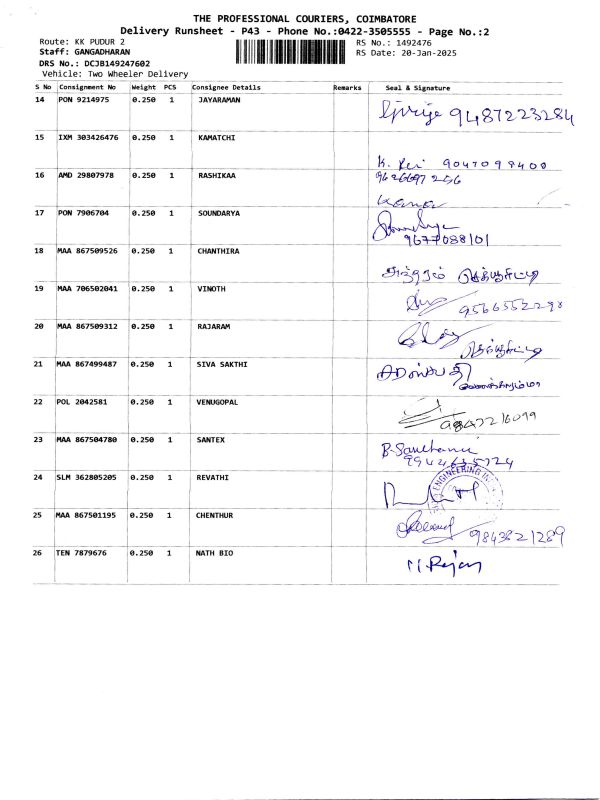 THE PROFESSIONAL COURIERS, COIMBATORE
Delivery Runsheet - P43 - Phone No.:0422-3505555 - Page No.:2
Route: KK PUDUR 2
RS No.: 1492476
Staff: GANGADHARAN
RS Date: 20-Jan-2025
DRS No.: DCJB149247602
Vehicle: Two Wheeler Delivery
S No Consignment No Weight PCS Consignee Details Remarks Seal & Signature
14 PON 9214975 0.250 1 JAYARAMAN
9487223284
15 IXM 303426476 0.250 1 KAMATCHI
16 AMD 29807978 0.250 1 RASHIKAA
17 PON 7906704 0.250 1 SOUNDARYA
9677088101
18 MAA 867509526 0.250 1 CHANTHIRA
19 MAA 706502041 0.250 1 VINOTH
9566552298
20 MAA 867509312 0.250 1 RAJARAM
21 MAA 867499487 0.250 1 SIVA SAKTHI
22 POL 2042581 0.250 1 VENUGOPAL
9847216099
23 MAA 867504780 0.250 1 SANTEX
24 SLM 362805205 0.250 1 REVATHI
ENGINEERING
25 MAA 867501195 0.250 1 CHENTHUR
9843821289
26 TEN 7879676 0.250 1 NATH BIO
M. Rajan